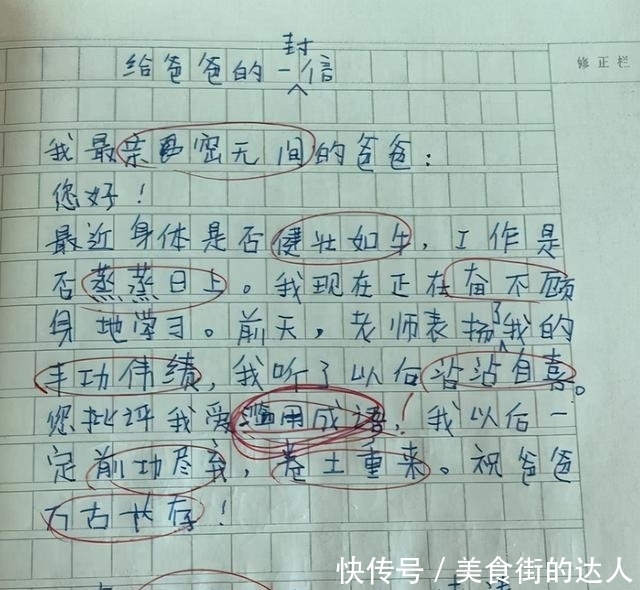 给爸爸的一封信
修正栏
我最亲密无间的爸爸：
您好！
最近身体是否健壮如牛，工作是
否蒸蒸日上。我现在正在奋不顾
身地学习。前天，老师表扬了我的
丰功伟绩，我听了以后沾沾自喜。
您批评我爱滥用成语！我以后一
定前功尽弃，卷土重来。祝爸爸
万古长存！
快传号／美食街的达人